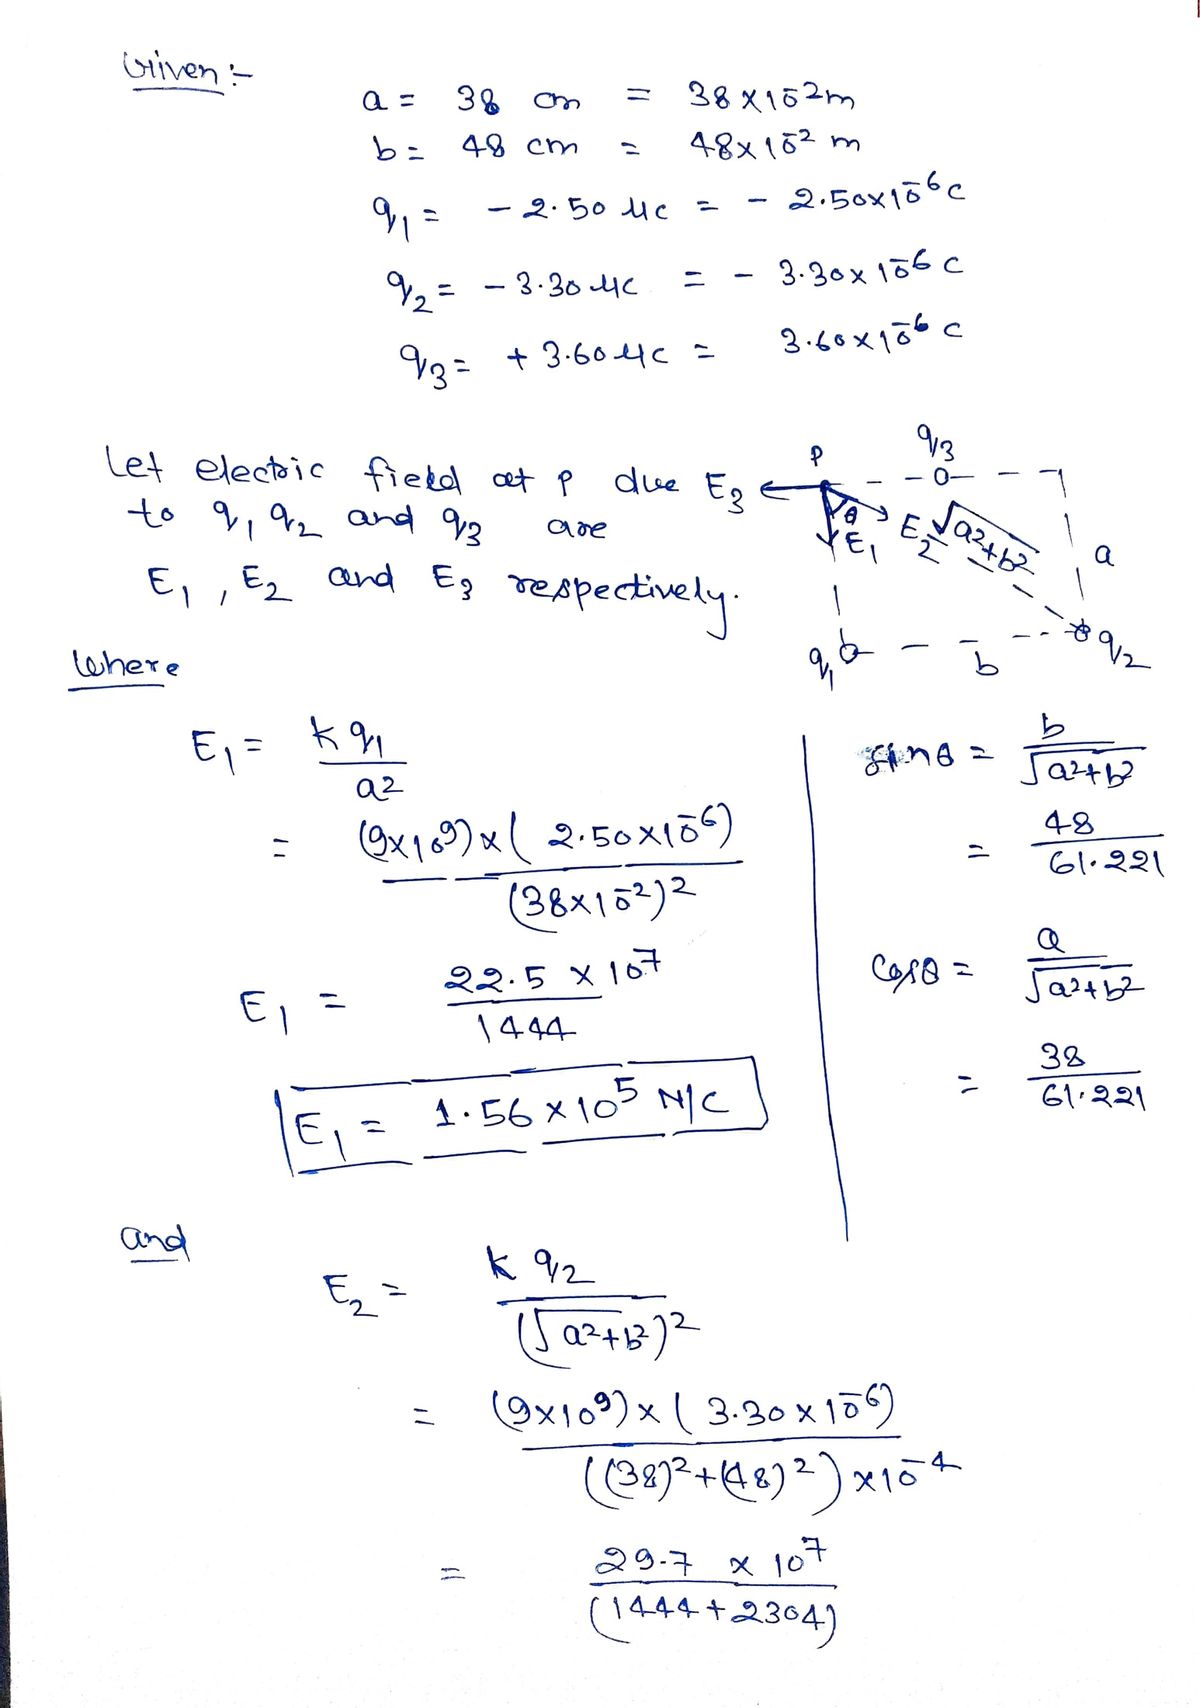 Given :-
a = 38 cm = 38 × 10⁻² m
b = 48 cm = 48 × 10⁻² m
q₁ = - 2.50 μC = - 2.50×10⁻⁶ C
q₂ = - 3.30 μC = - 3.30 × 10⁻⁶ C
q₃ = + 3.60 μC = 3.60 × 10⁻⁶ C
Let electric field at P due
to q₁ q₂ and q₃ are
E₁ , E₂ and E₃ respectively.
P
q₃
E₃
θ
E₁
E₂
√a²+b²
a
q₁
b
q₂
Where
E₁ = k q₁ / a²
= (9×10⁹) × ( 2.50×10⁻⁶) / (38×10⁻²)²
E₁ = 22.5 × 10⁷ / 1444
E₁ = 1.56 × 10⁵ N/C
sinθ = b / √a²+b²
= 48 / 61.221
cosθ = a / √a²+b²
= 38 / 61.221
and
E₂ = k q₂ / (√a²+b²)²
= (9×10⁹) × ( 3.30 × 10⁻⁶) / ((38)²+(48)²) × 10⁻⁴
= 29.7 × 10⁷ / (1444 + 2304)